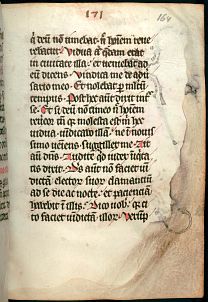 171
164
q deu nō timebat ⁊ hoīem nō reue
rebatur. Vidua at qdam erat
in ciuitate illa. et ueniebat ad
eū dicens. Vindica me de adu
sario meo. Et nolebat p multū
temp̄us. Post hec aut dixit int̄
se. Et si deū nō timeo nec hoīem
reuēor. tn̄ qr molesta est m̄ hec
vidua. uīdicabo illā. ne ī nouiss̄
simo ueniens suggillet me. Ait
aut dn̄s. Audite qd iudex īiqita
tis dicit. Ds aut nō faciet uin
dictā elector suor clamantiū
ad se die ac nocte. et pacienciā
habebit ī illis. Dico uob. qr ci
to faciet uīdictā illor. Verūp